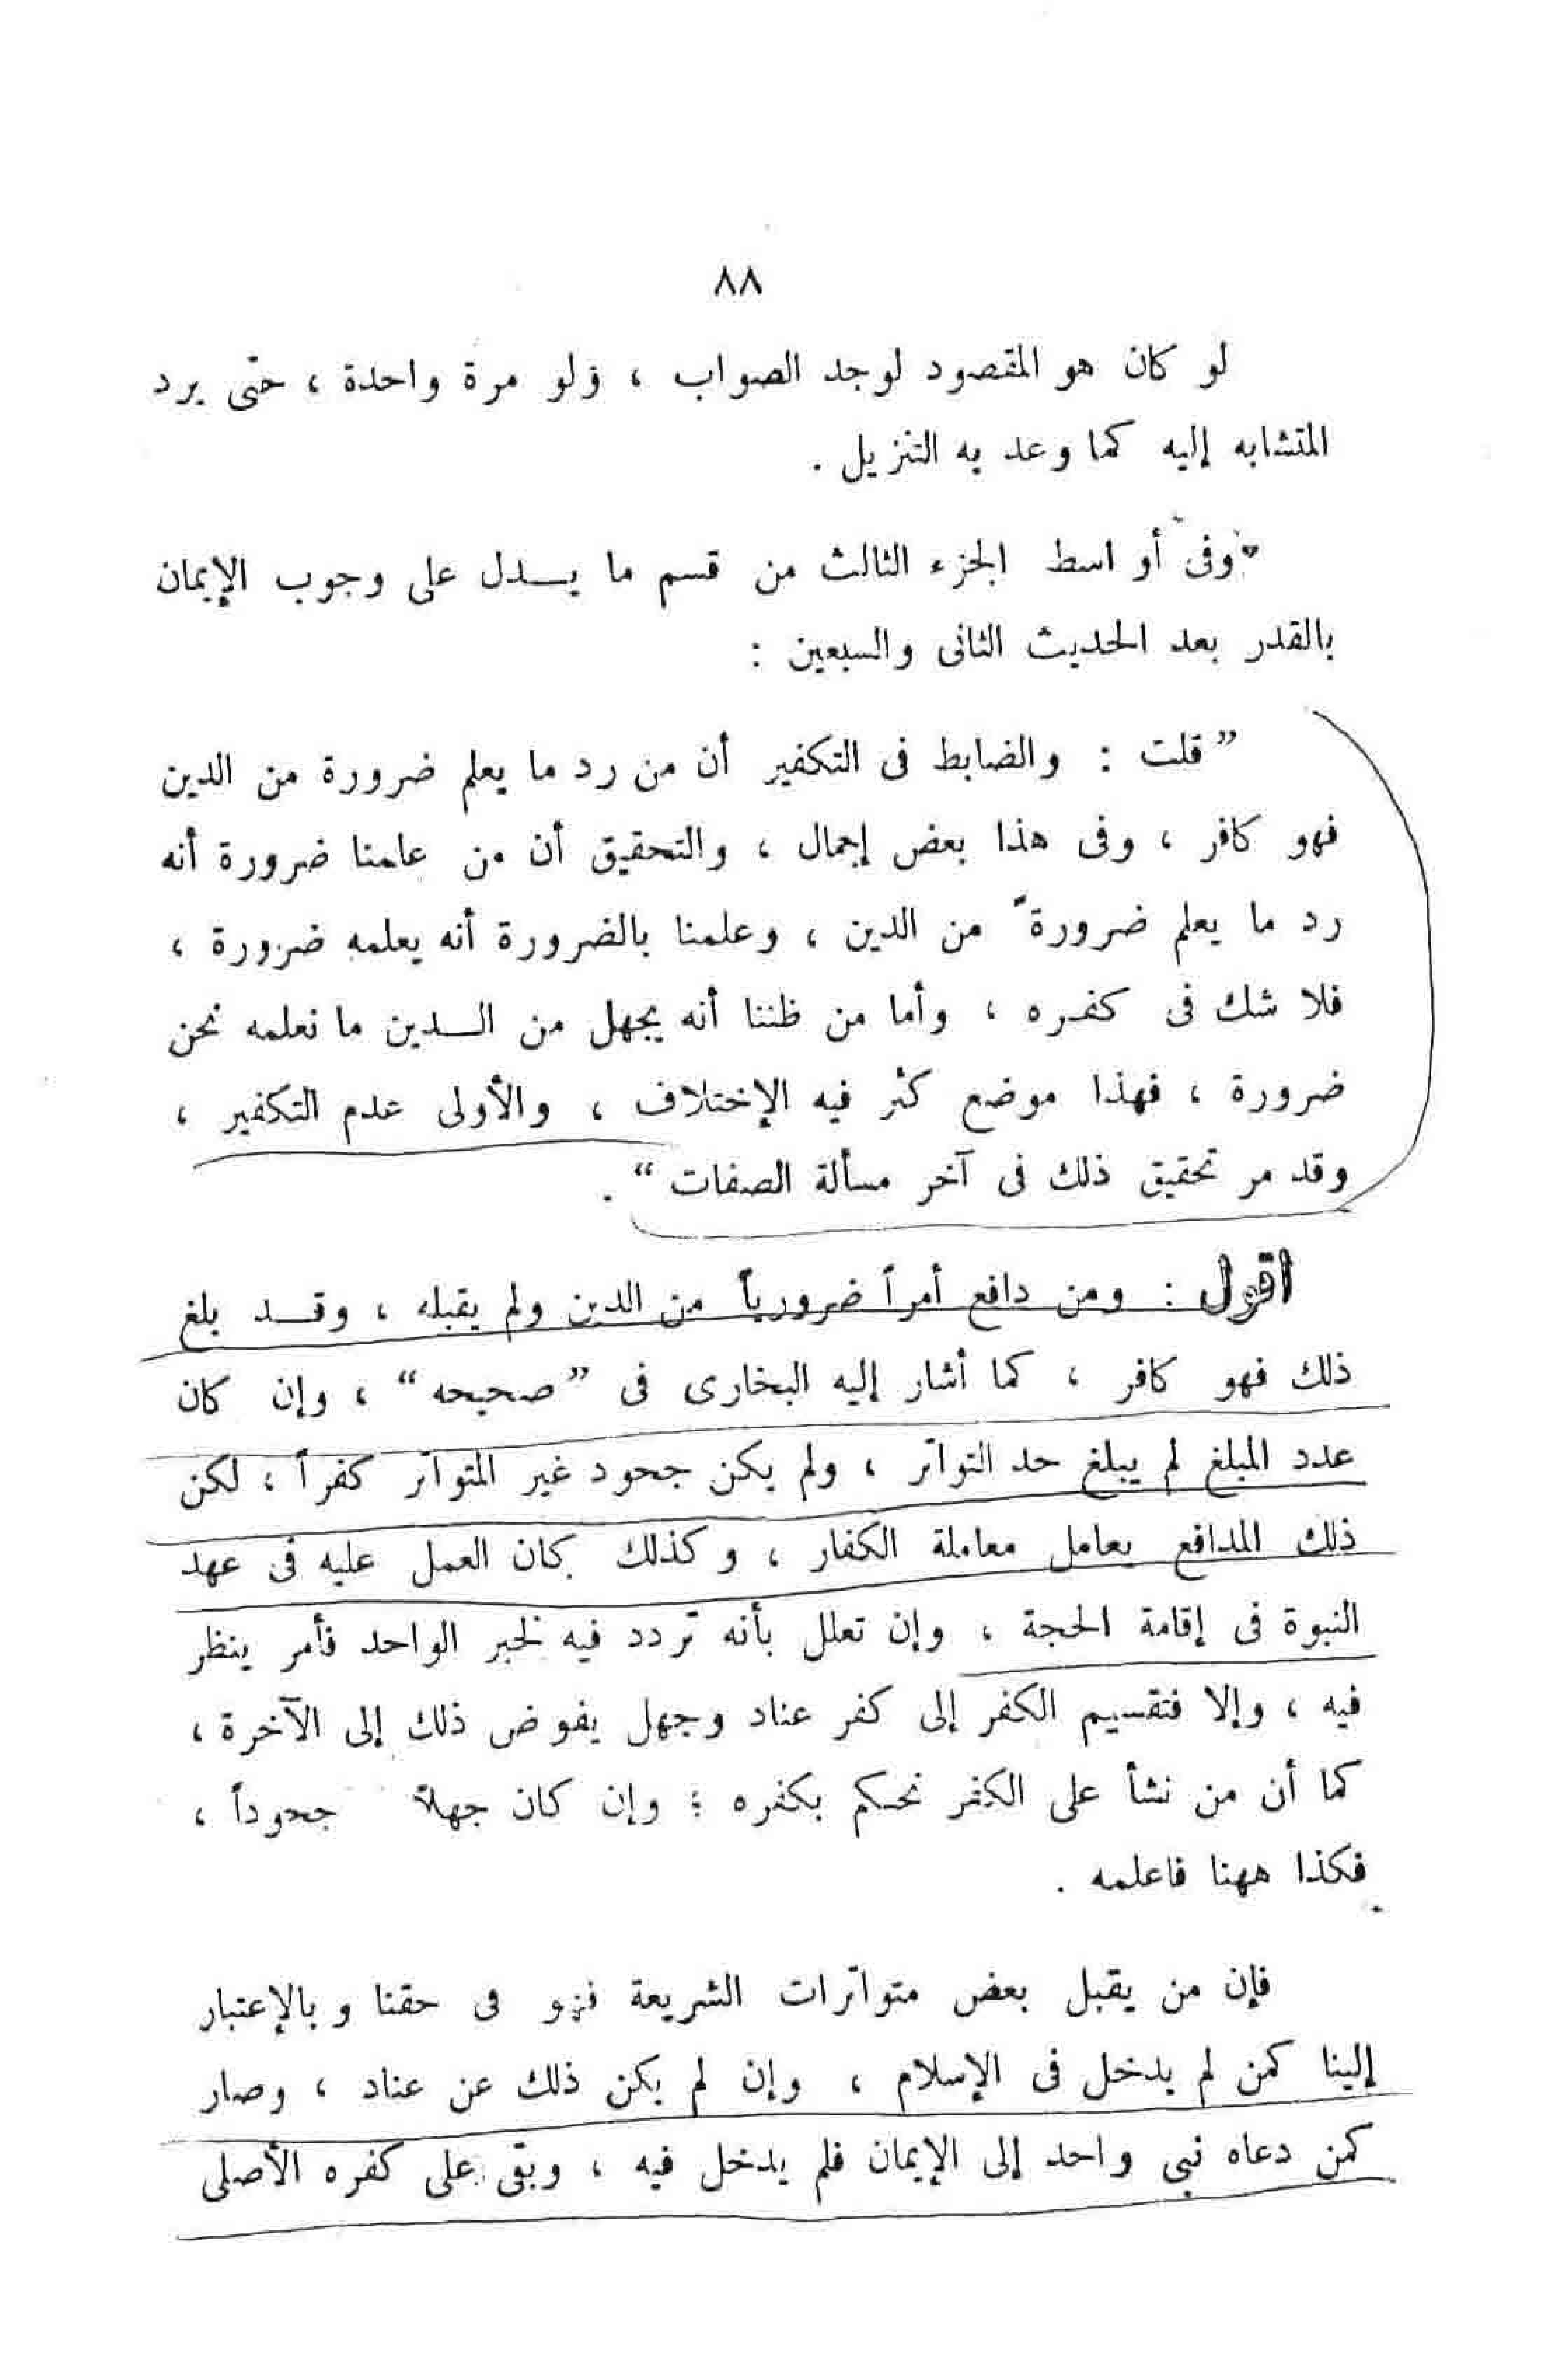 ٨٨
لو كان هو المقصود لوجد الصواب ، ولو مرة واحدة ، حتى يرد
المتشابه إليه كما وعد به التنزيل .
وفى أواسط الجزء الثالث من قسم ما يـــدل على وجوب الإيمان
بالقدر بعد الحديث الثانى والسبعين :
” قلت : والضابط فى التكفير أن من رد ما يعلم ضرورة من الدين
فهو كافر ، وفى هذا بعض إجمال ، والتحقيق أن من علمنا ضرورة أنه
رد ما يعلم ضرورةً من الدين ، وعلمنا بالضرورة أنه يعلمه ضرورة ،
فلا شك فى كفـره ، وأما من ظننا أنه يجهل من الـــدين ما نعلمه نحن
ضرورة ، فهذا موضع كثر فيه الإختلاف ، والأولى عدم التكفير ،
وقد مر تحقيق ذلك فى آخر مسألة الصفات “ .
اقول : ومن دافع أمراً ضرورياً من الدين ولم يقبله ، وقـــد بلغ
ذلك فهو كافر ، كما أشار إليه البخارى فى ” صحيحه “ ، وإن كان
عدد المبلغ لم يبلغ حد التواتر ، ولم يكن جحود غير المتواتر كفراً ، لكن
ذلك المدافع يعامل معاملة الكفار ، وكذلك كان العمل عليه فى عهد
النبوة فى إقامة الحجة ، وإن تعلل بأنه تردد فيه لخبر الواحد فأمر ينظر
فيه ، وإلا فتقسيم الكفر إلى كفر عناد وجهل يفوض ذلك إلى الآخرة ،
كما أن من نشأ على الكفر نحكم بكفره ؛ وإن كان جهلاً جحوداً ،
فكذا ههنا فاعلمه .
فإن من يقبل بعض متواترات الشريعة فهو فى حقنا وبالإعتبار
إلينا كمن لم يدخل فى الإسلام ، وإن لم يكن ذلك عن عناد ، وصار
كمن دعاه نبى واحد إلى الإيمان فلم يدخل فيه ، وبقى على كفره الأصلى